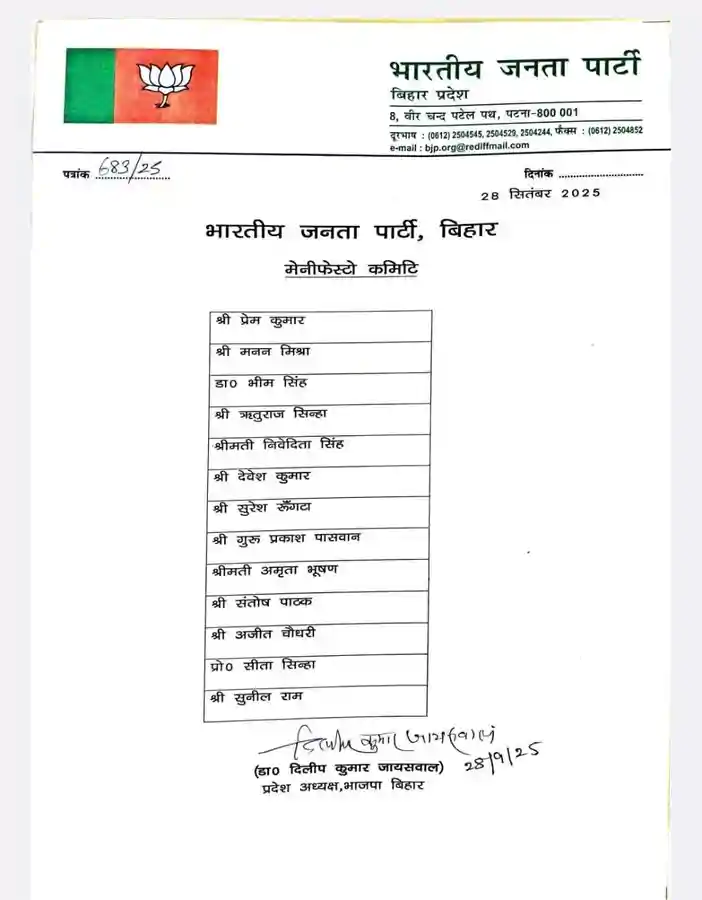 भारतीय जनता पार्टी
बिहार प्रदेश
8, वीर चन्द पटेल पथ, पटना-800 001
दूरभाष : (0612) 2504545, 2504529, 2504244, फैक्स : (0612) 2504852
e-mail : bjp.org@rediffmail.com
पत्रांक 683/25
दिनांक ............................
28 सितंबर 2025
भारतीय जनता पार्टी, बिहार
मेनीफेस्टो कमिटि
श्री प्रेम कुमार
श्री मनन मिश्रा
डा0 भीम सिंह
श्री ऋतुराज सिन्हा
श्रीमती निवेदिता सिंह
श्री देवेश कुमार
श्री सुरेश रूँगटा
श्री गुरू प्रकाश पासवान
श्रीमती अमृता भूषण
श्री संतोष पाठक
श्री अजीत चौधरी
प्रो0 सीता सिन्हा
श्री सुनील राम
दिलीप कुमार जायसवाल
28/9/25
(डा0 दिलीप कुमार जायसवाल)
प्रदेश अध्यक्ष,भाजपा बिहार